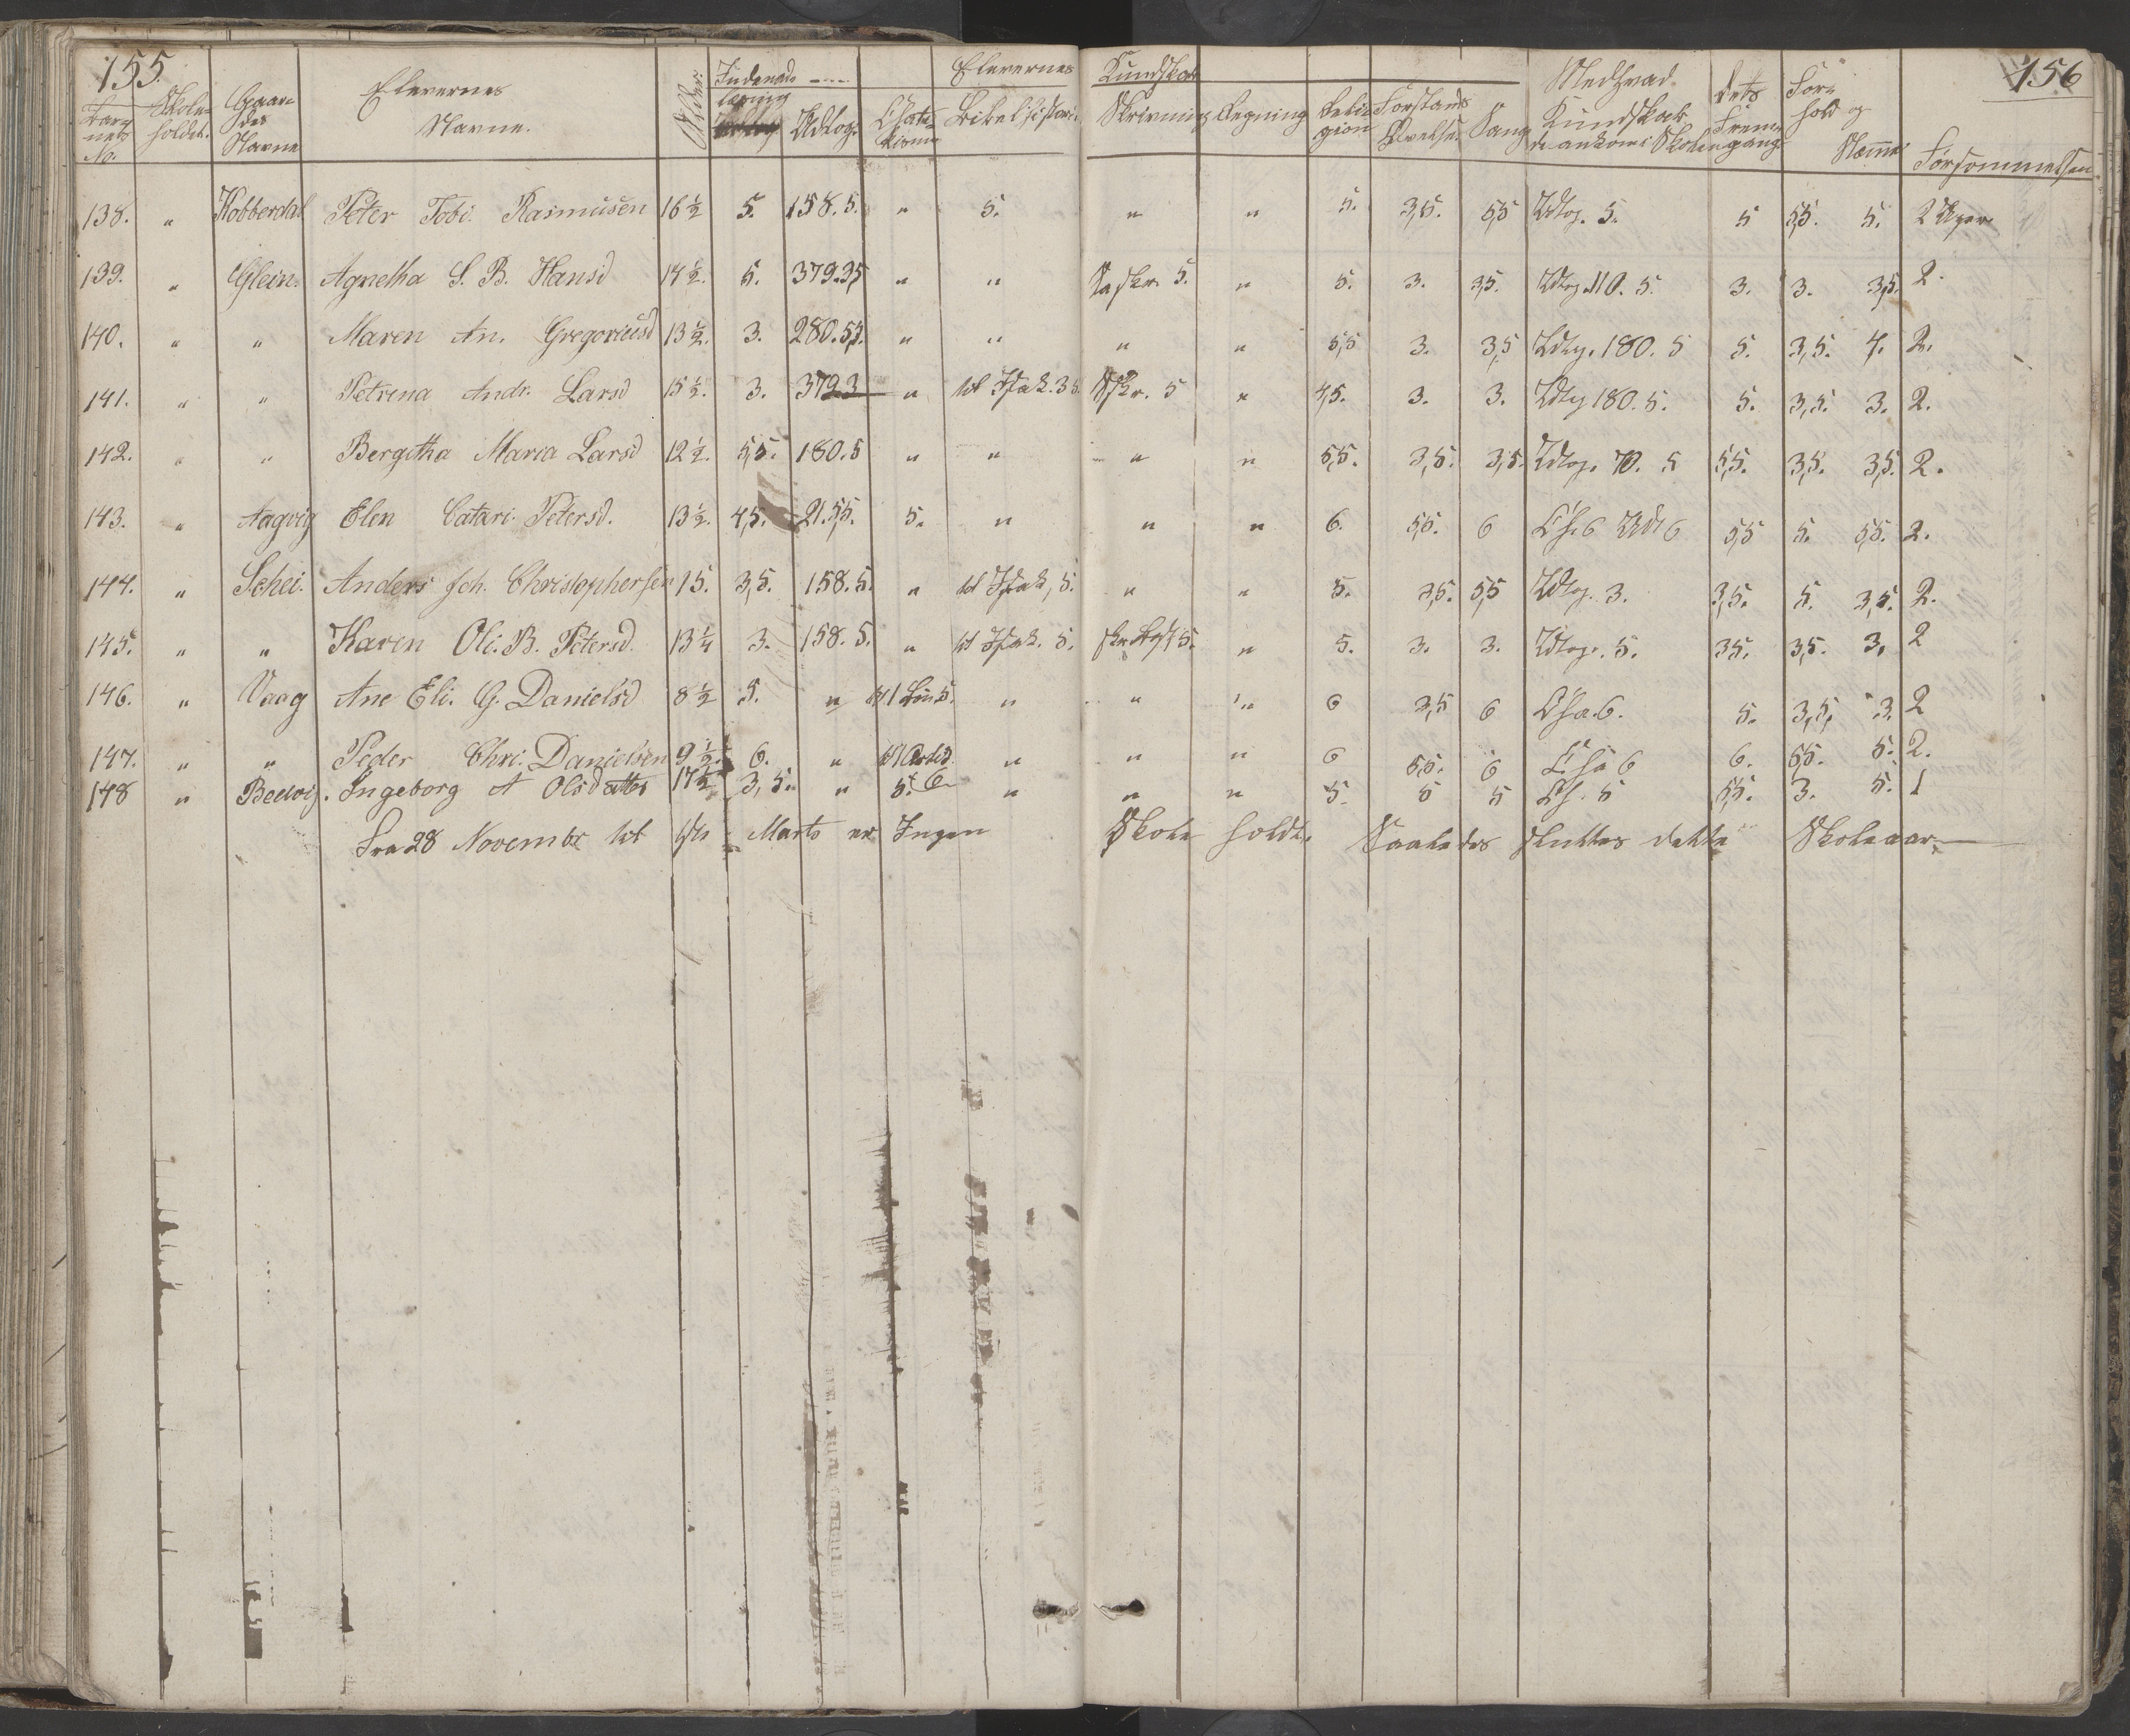 155
156
Elevernes Kundskab
Barnets No. Skoleholdet. Gaardes Navne Elevernes Navne. Alder. Indenadlæsning Udlog. Cathekisme Bibelhistorie Skrivning Regning Religion Forstands Øvelse Sang Medhvad Kundskab de ankom i Skolen dets Fremgang Forhold og Næmme Forsømmelsen
138. " Kobberdal Peter Tobi. Rasmusen 16½ 5. 158.5. " 5. " " 5. 3,5. 5,5 Udlog. 5. 5 5,5. 5. 2 Uger
139. " Glein. Agnetha S. B. Hansd 14½. 5. 379.35 " " 5. " 5. 3. 3,5. Udlog. 110. 5. 3. 3. 3,5. 2.
140. " " Maren An. Gregoriusd 13½. 3. 280.5,5. " " " " 5,5 3. 3,5 Udlg. 180. 5 5. 3,5. 4. 2.
141. " " Petrina Andr. Larsd 15½. 3. 379.3 " til Isak. 3.5. Skr. 5 " 4,5. 3. 3. Udlg 180. 5. 5. 3,5. 3. 2.
142. " " Bergitha Maria Larsd 12½. 5,5. 180.5 " " " " 5,5. 3,5. 3,5. Udlog. 70. 5 5,5. 3,5. 3,5. 2.
143. " Aagvig Elen Catari. Petersd. 13½. 4,5. 21.5,5. 5. " " " 6. 5,5. 6 Ch. 6 Udl 6 5,5 5. 5,5. 2.
144. " Schei. Anders Joh. Christophersen 15. 3,5. 158.5. " til Isak, 5. " " 5. 3,5. 5,5 Udlog. 3. 3,5. 5. 3,5. 2.
145. " " Karen Oli. B. Petersd. 13¼ 3. 158.5. " til Isak. 5. 5. " 5. 3. 3. Udlog. 5. 3,5. 3,5. 3. 2
146. " Vaag Ane Eli. G. Danielsd 8½ 5. " til 1 5. " " " 6 3,5 6 Cha. 6. 5. 3,5. 3. 2
147. " " Peder Chri. Danielsen 9½. 6. " til 1 Artid. 6 " " " 6 5,5. 6 Cha 6 6. 5,5. 5. 2.
148 " Beevig. Ingeborg A Olsdatter 17½ 3,5. " 5. " " " 5. 5 5 Ch. 5 5,5. 3. 5. 1
Fra 28 November til Marts er Ingen Skole holdt. Saaledes sluttes dette Skoleaar.